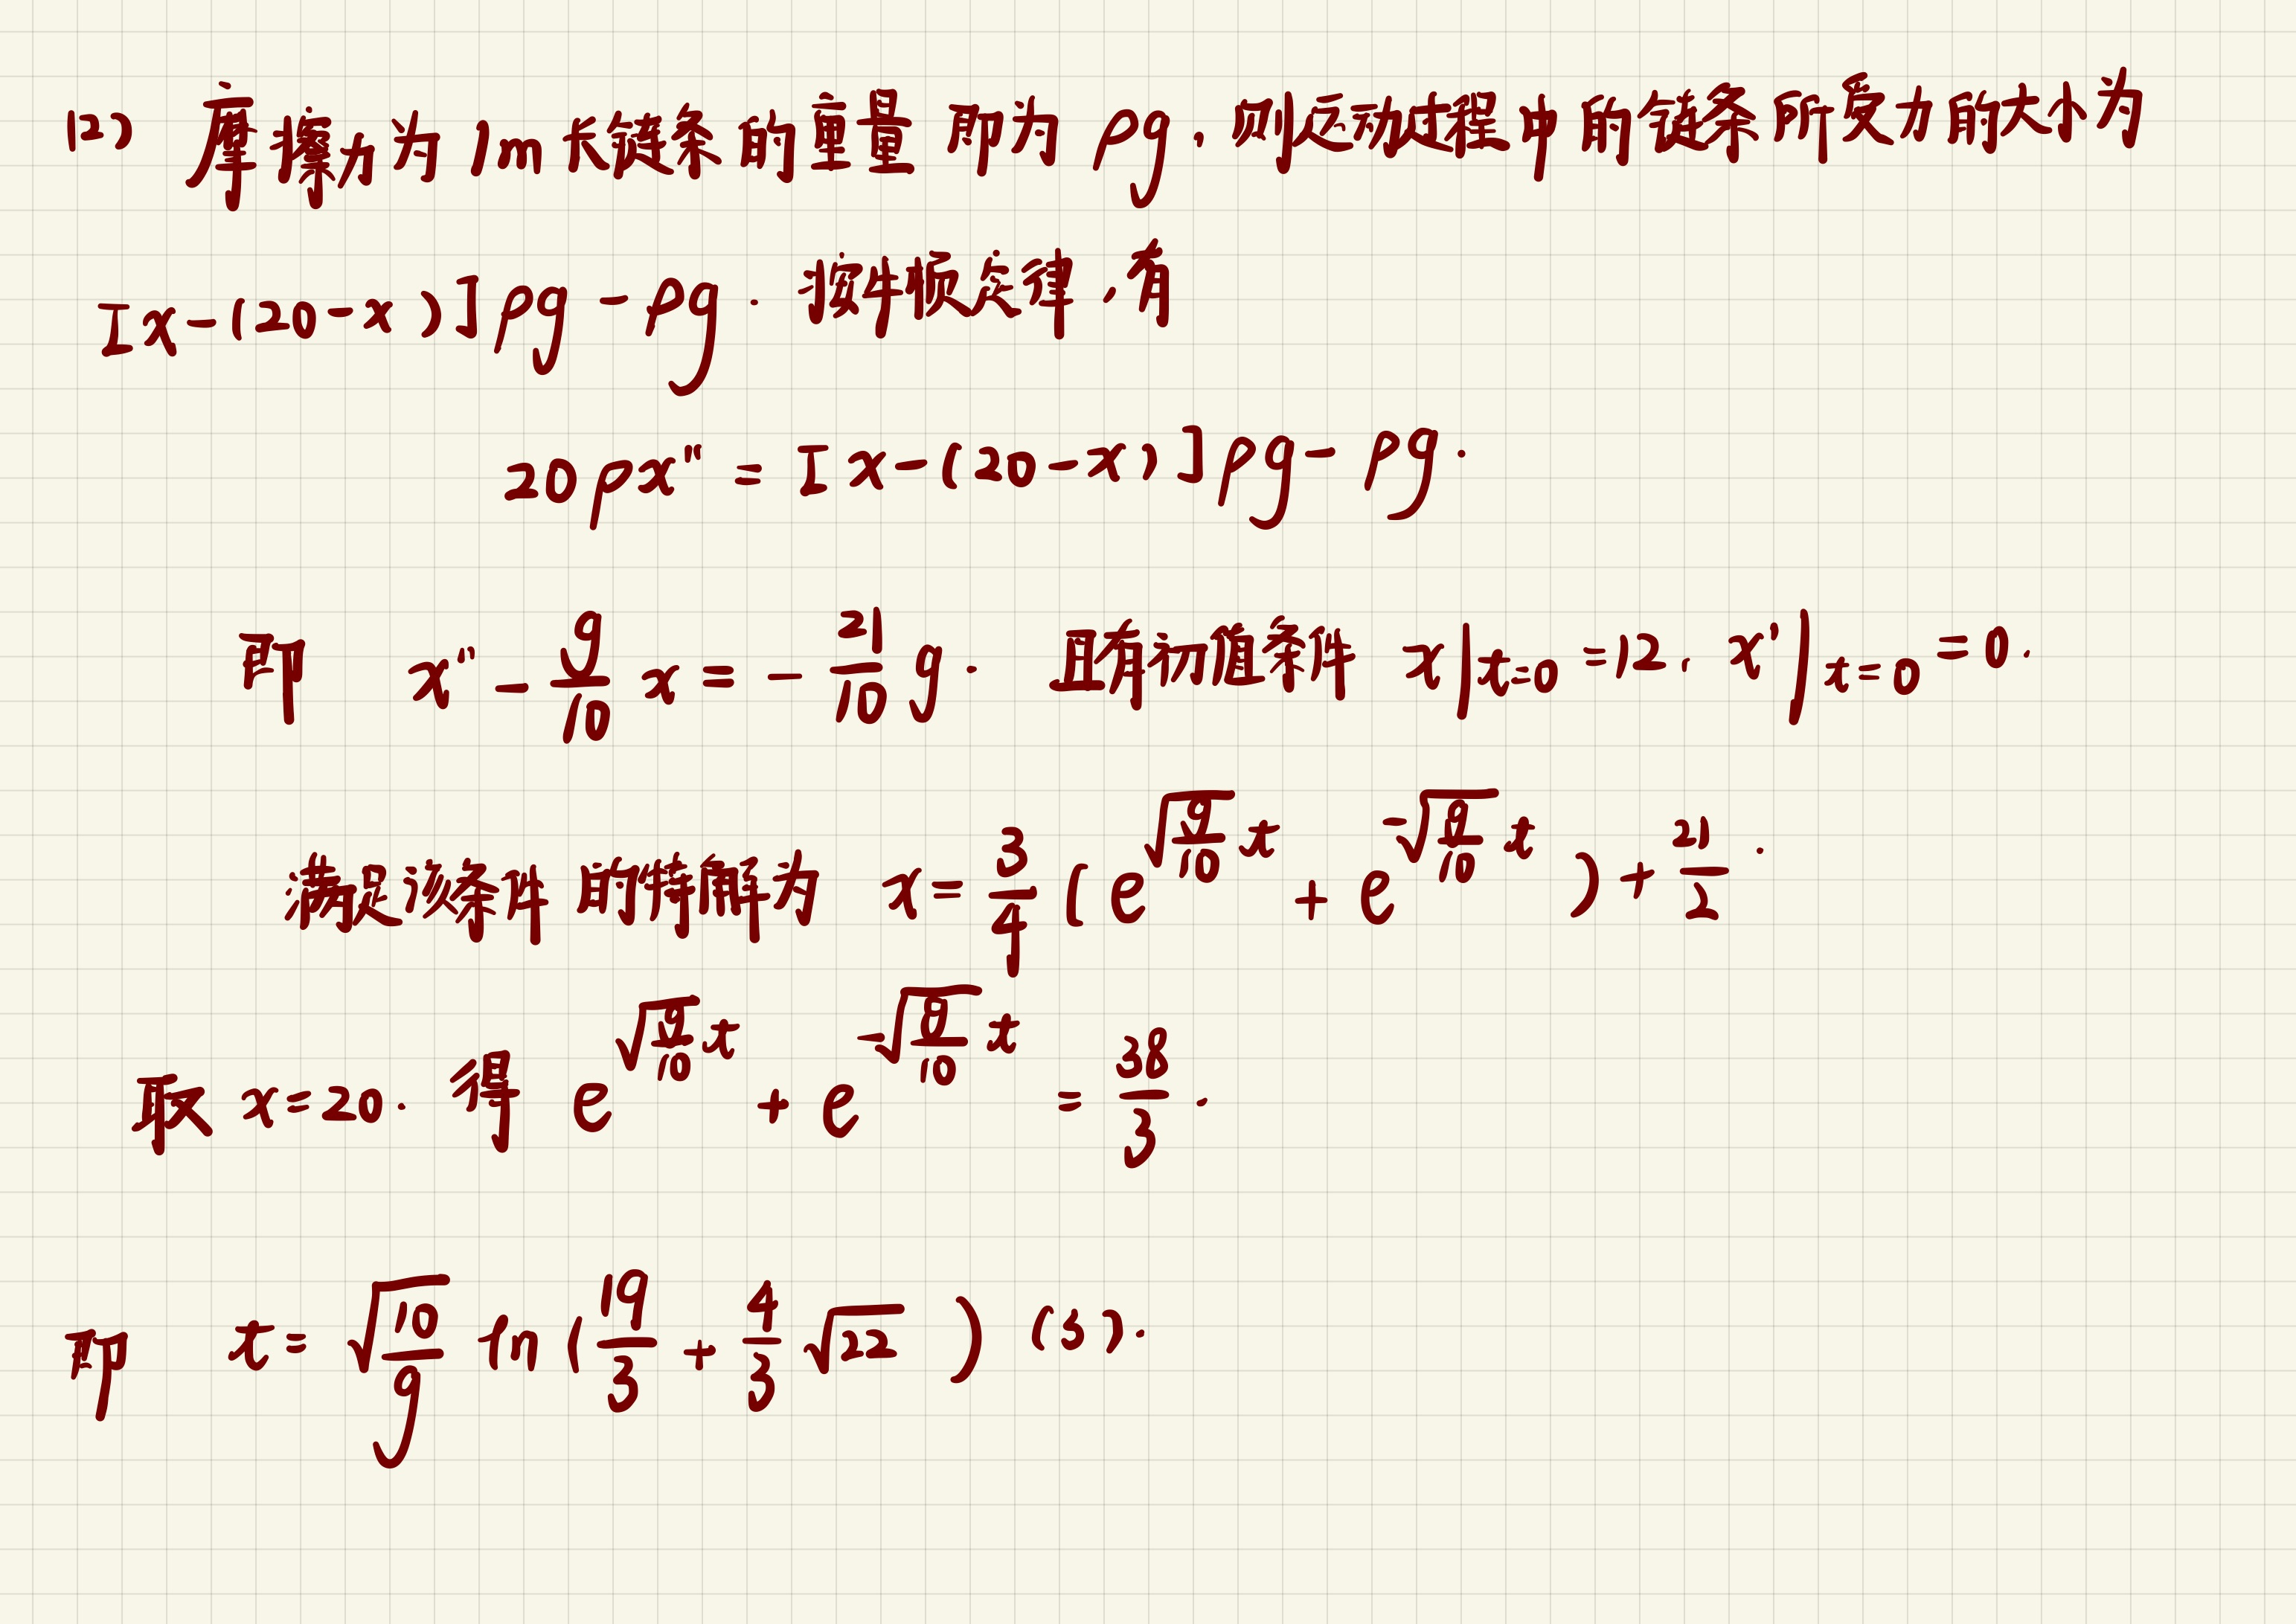 (2) 摩擦力为 1m 长链条的重量 即为 ρg, 则运动过程中的链条所受力的大小为
[x-(20-x)]ρg-ρg. 按牛顿定律,有
20ρx″=[x-(20-x)]ρg-ρg.
即 x″-\frac{g}{10}x=-\frac{21}{10}g. 且有初值条件 x|_{t=0}=12, x'|_{t=0}=0.
满足该条件的特解为 x=\frac{3}{4}(e^{\sqrt{\frac{g}{10}}t}+e^{-\sqrt{\frac{g}{10}}t})+\frac{21}{2}.
取 x=20. 得 e^{\sqrt{\frac{g}{10}}t}+e^{-\sqrt{\frac{g}{10}}t}=\frac{38}{3}.
即 t=\sqrt{\frac{10}{g}}ln(\frac{19}{3}+\frac{4}{3}\sqrt{22})(s).